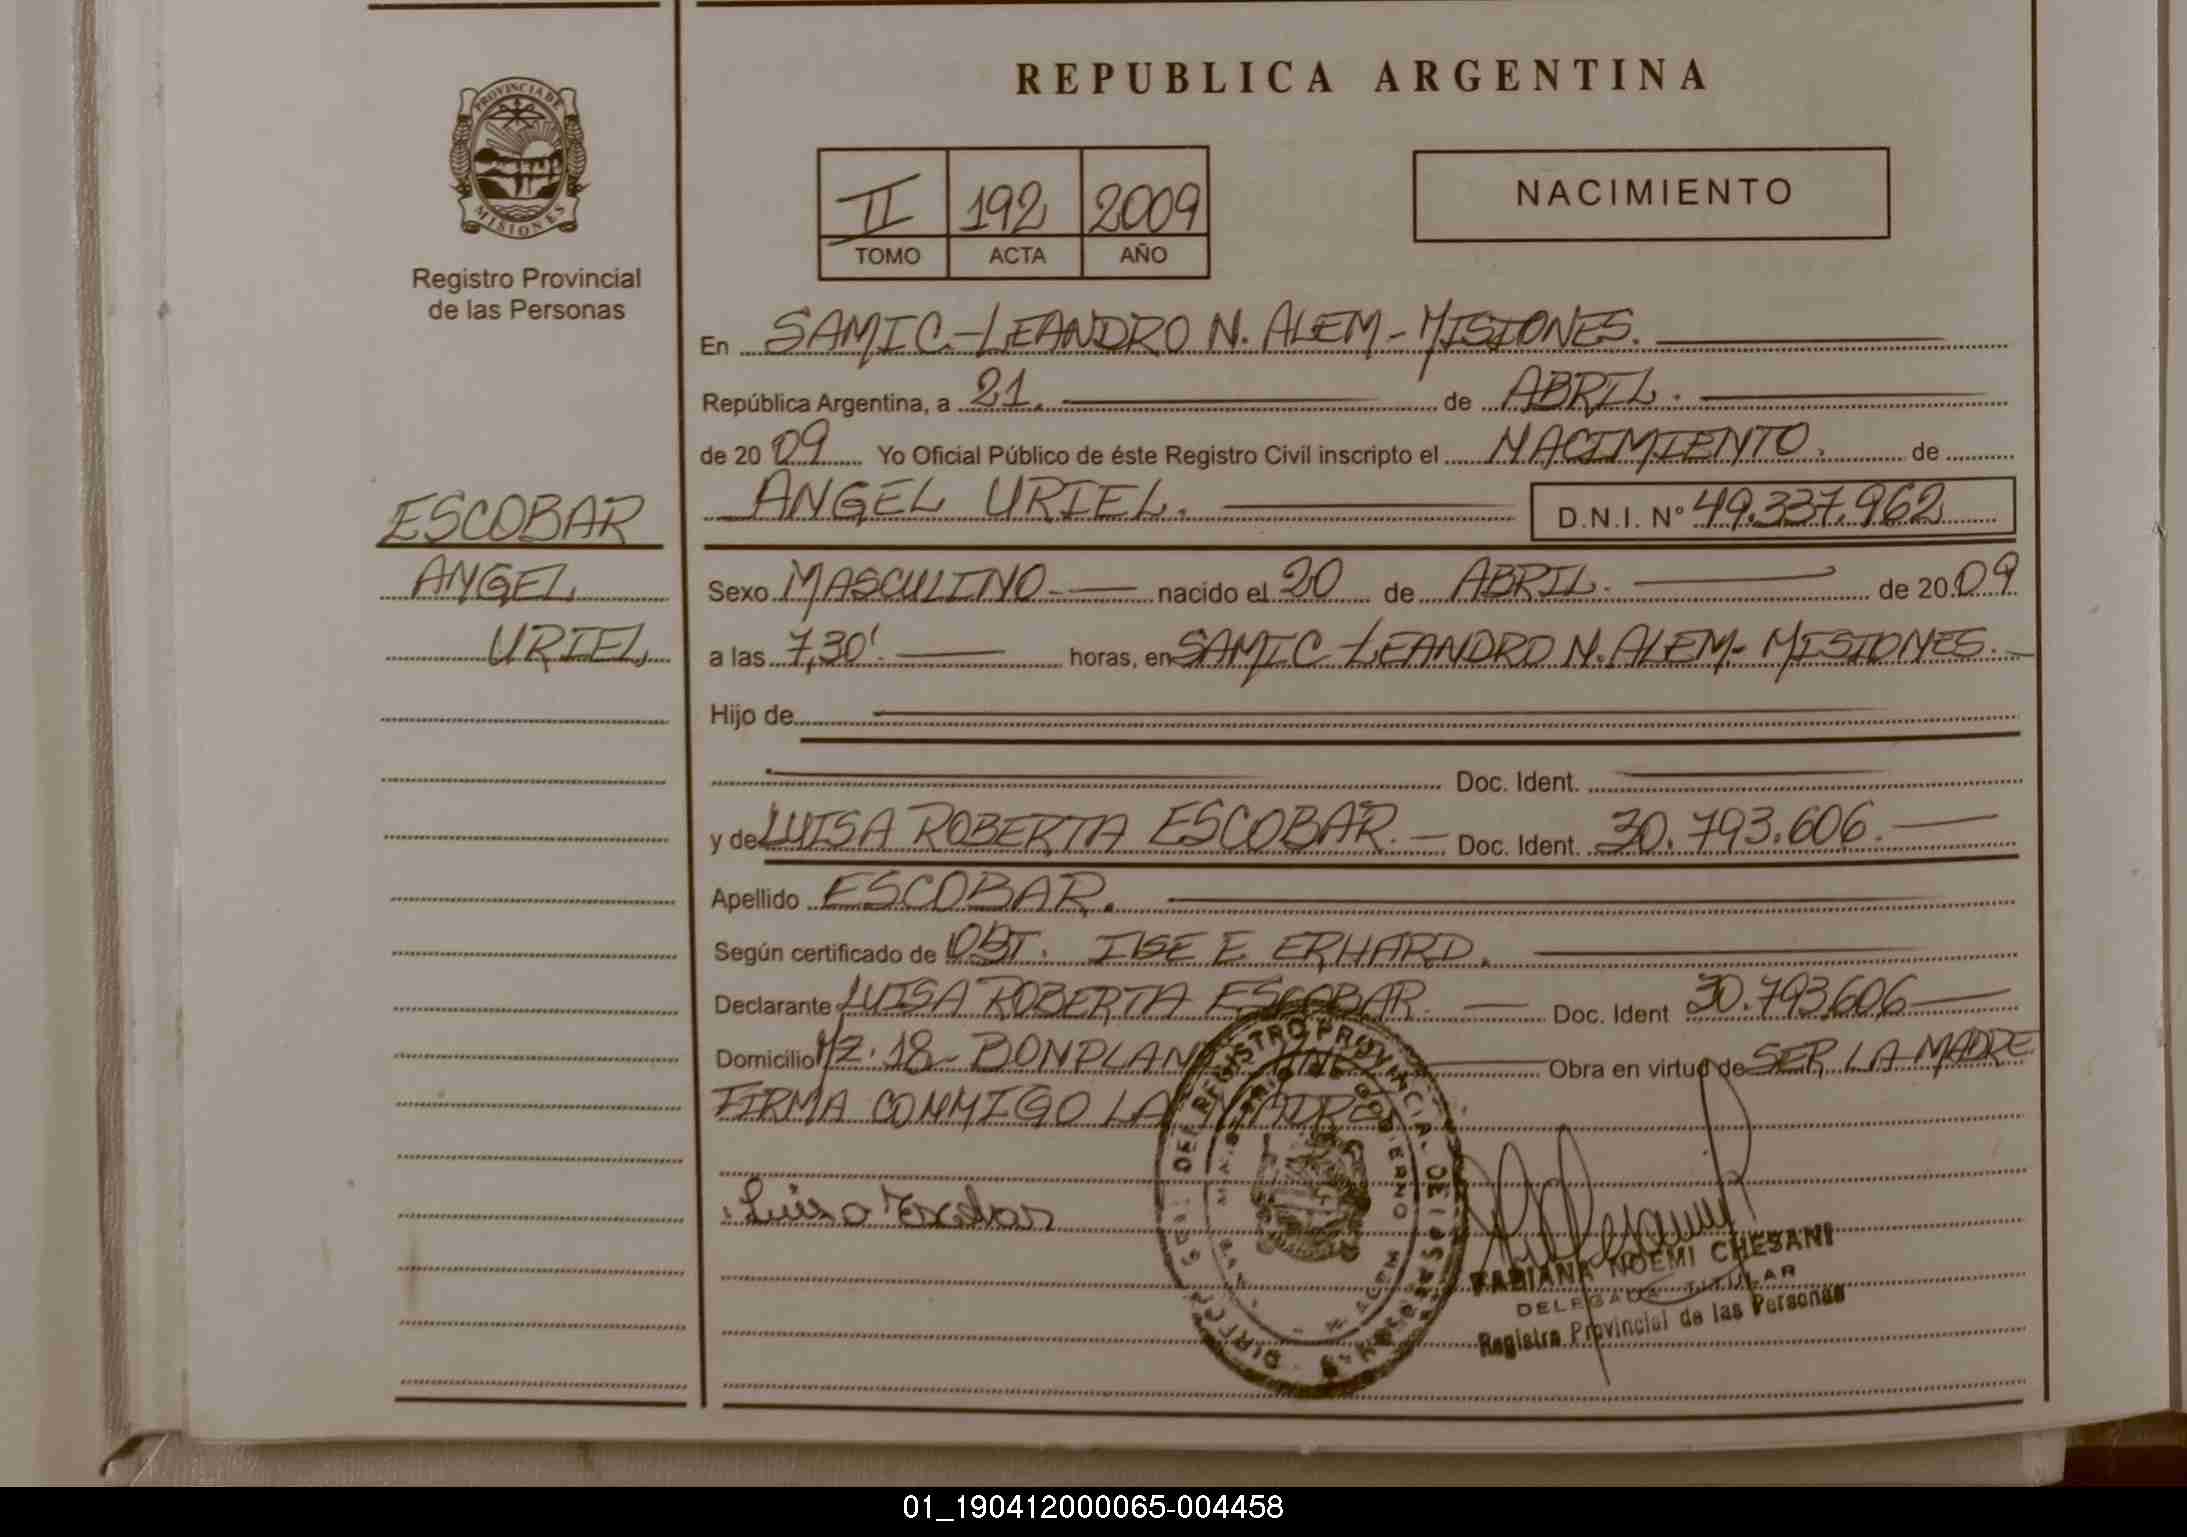 REPUBLICA ARGENTINA
PROVINCIA DE
MISIONES
Registro Provincial
de las Personas
II 192 2009
TOMO ACTA AÑO
NACIMIENTO
ESCOBAR
ANGEL
URIEL
En SAMIC-LEANDRO N. ALEM-MISIONES.
República Argentina, a 21. de ABRIL.
de 2009 Yo Oficial Público de éste Registro Civil inscripto el NACIMIENTO. de
ANGEL URIEL. D.N.I. Nº 49.337.962
Sexo MASCULINO- nacido el 20 de ABRIL. de 2009
a las 7,30'. horas, en SAMIC-LEANDRO N. ALEM- MISIONES.
Hijo de
Doc. Ident.
y de LUISA ROBERTA ESCOBAR. Doc. Ident. 30.793.606.
Apellido ESCOBAR.
Según certificado de OBT. ILSE E. ERHARD.
Declarante LUISA ROBERTA ESCOBAR. Doc. Ident 30.793.606
Domicilio MZ. 18- BONPLAND Obra en virtud de SER LA MADRE
FIRMA CONMIGO LA MADRE
Luisa Escobar
FABIANA NOEMI CHESANI
DELEGADA TITULAR
Registro Provincial de las Personas
01_190412000065-004458